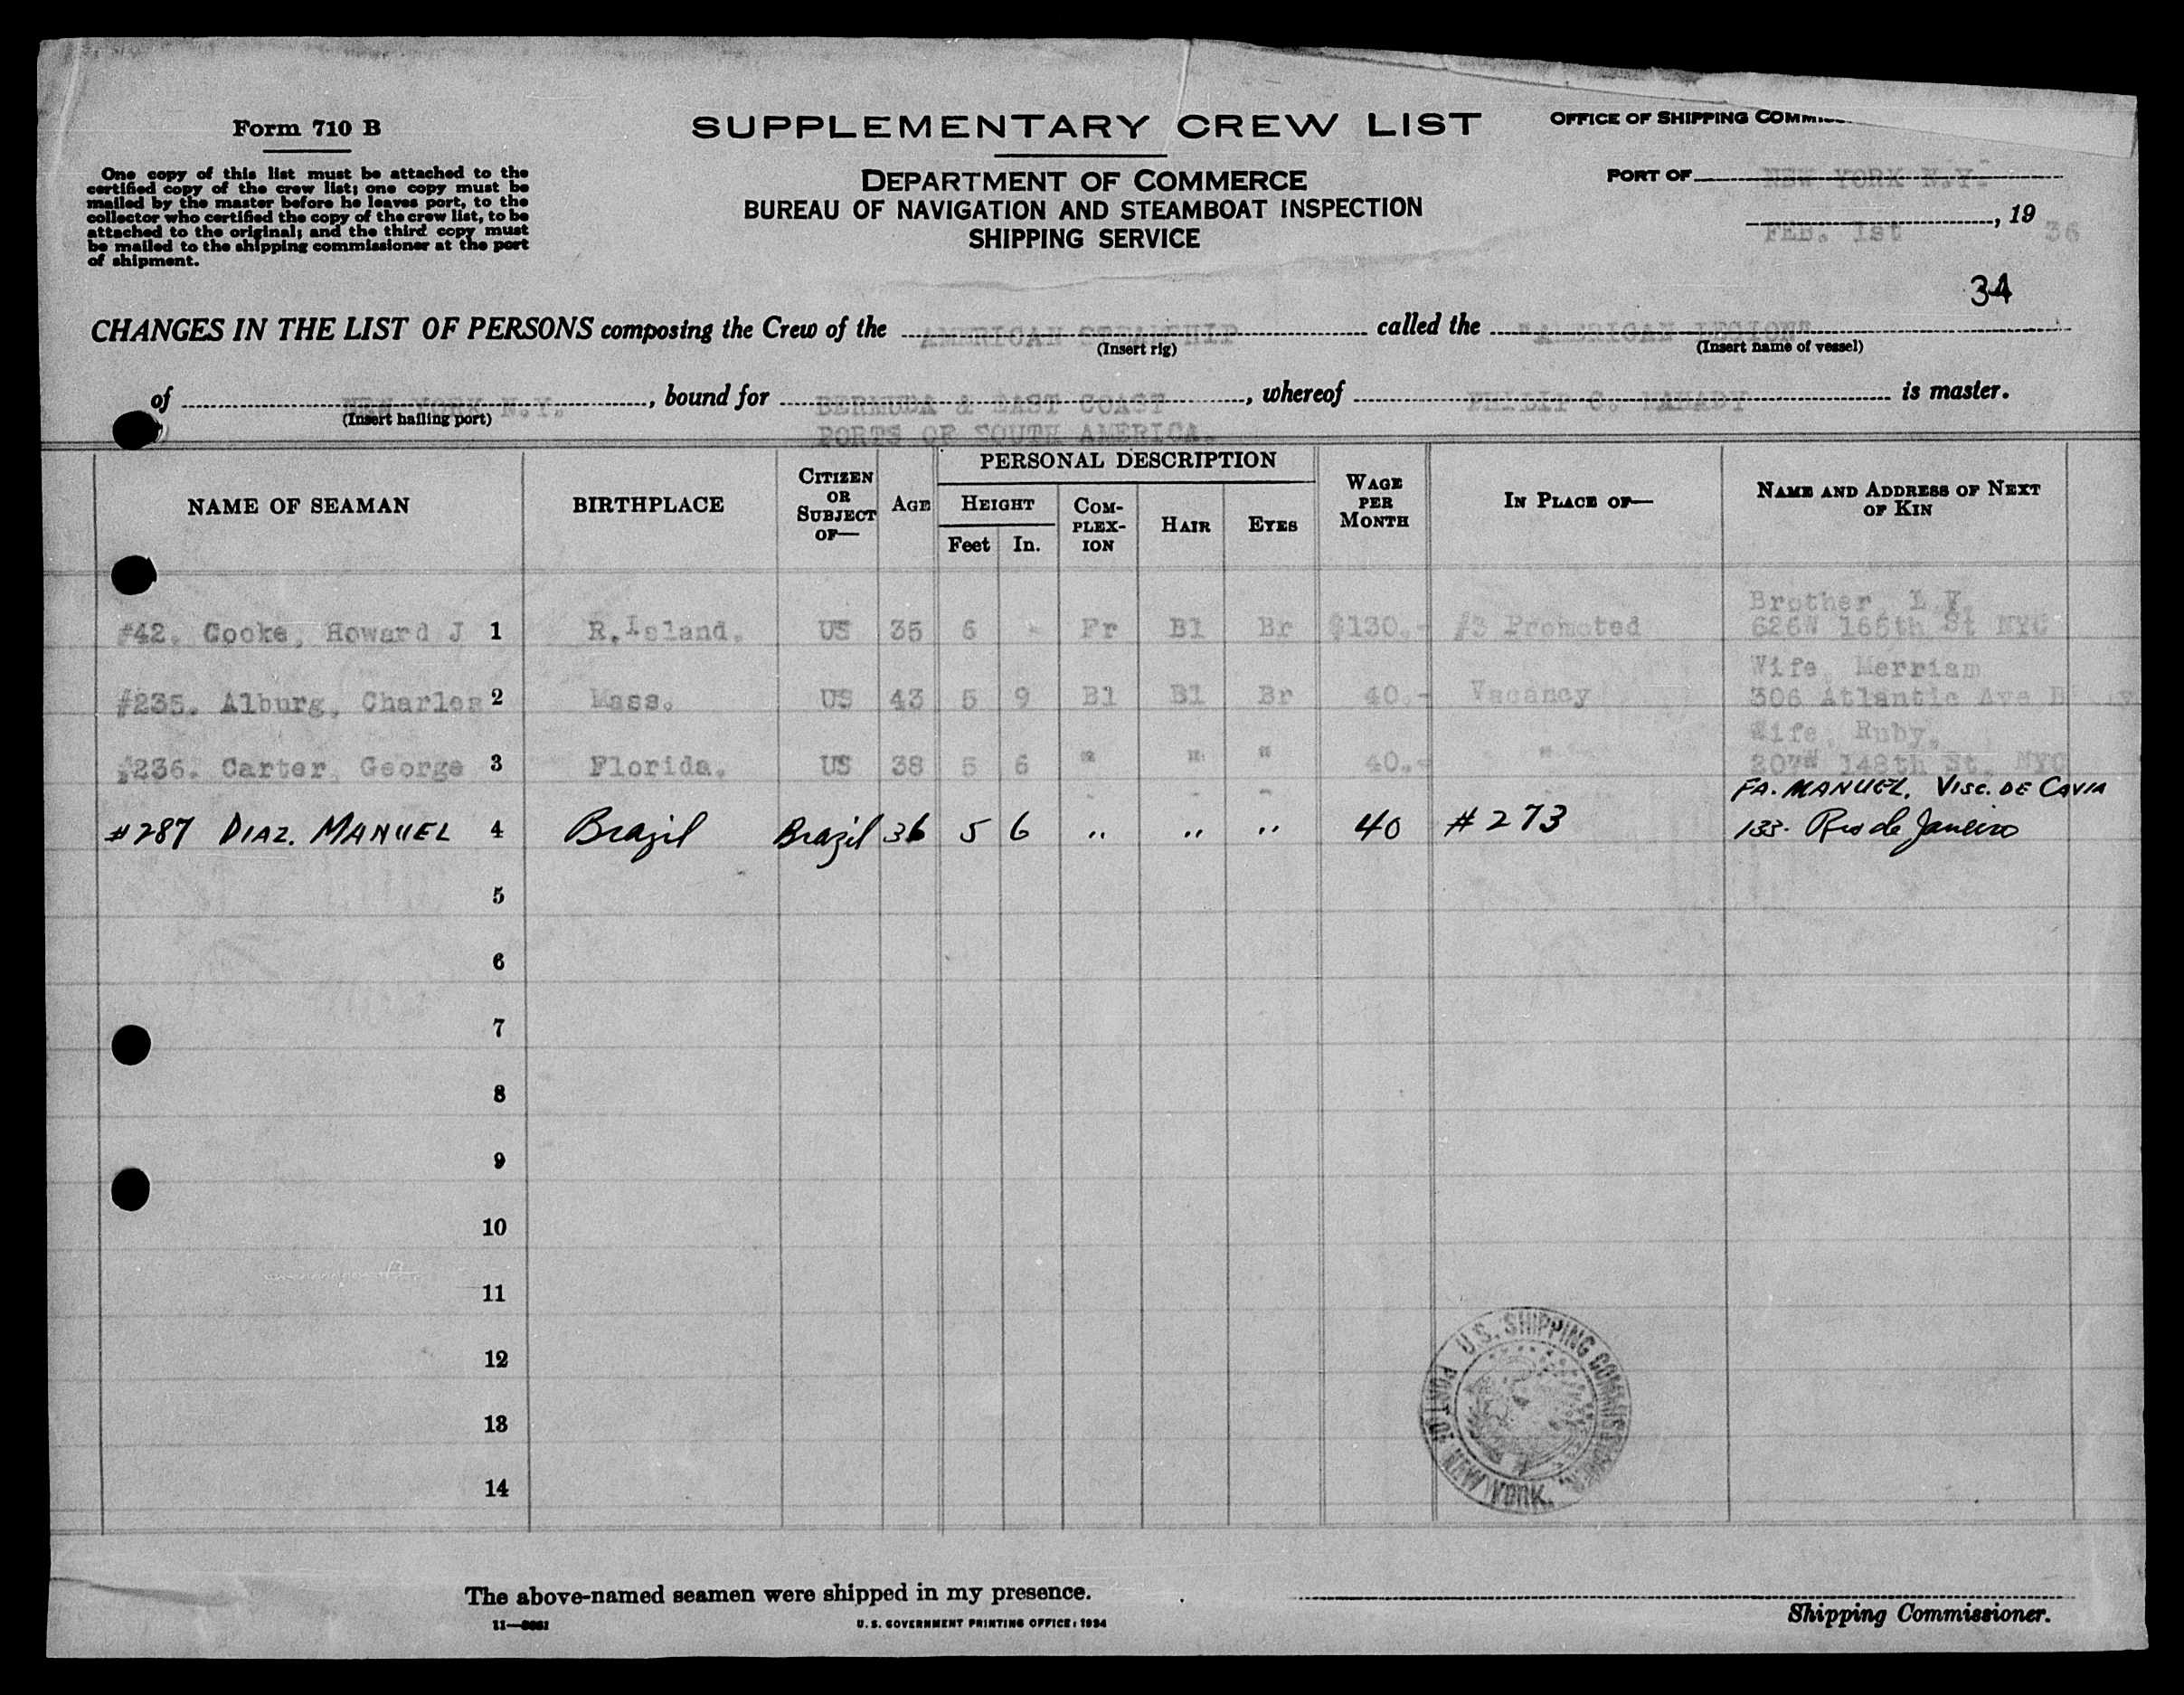 Form 710 B
One copy of this list must be attached to the
certified copy of the crew list; one copy must be
mailed by the master before he leaves port, to the
collector who certified the copy of the crew list, to be
attached to the original; and the third copy must
be mailed to the shipping commissioner at the port
of shipment.
SUPPLEMENTARY CREW LIST
DEPARTMENT OF COMMERCE
BUREAU OF NAVIGATION AND STEAMBOAT INSPECTION
SHIPPING SERVICE
OFFICE OF SHIPPING
PORT OF NEW YORK N.Y.
FEB. 1st, 19 36
34
CHANGES IN THE LIST OF PERSONS composing the Crew of the AMERICAN STEAMSHIP called the "AMERICAN LEGION"
(Insert rig) (Insert name of vessel)
of NEW YORK N.Y., bound for BERMUDA & EAST COAST, whereof PHILIP C. MAHADY is master.
(Insert hailing port) PORTS OF SOUTH AMERICA.
NAME OF SEAMAN BIRTHPLACE CITIZEN OR SUBJECT OF— AGE PERSONAL DESCRIPTION HEIGHT Feet In. COMPLEXION HAIR EYES WAGE PER MONTH IN PLACE OF— NAME AND ADDRESS OF NEXT OF KIN
Brother,
#42. Cooke, Howard J 1 R.Island. US 35 6 - Fr Bl Br $130.- #3 Promoted 626W 165th St NYC
Wife, Merriam
#235. Alburg, Charles 2 Mass. US 43 5 9 Bl Bl Br 40.- Vacancy 306 Atlantic Ave
Wife, Ruby,
#236. Carter, George 3 Florida. US 38 5 6 " " " 40.- " 207W 148th St, NYC
FA. MANUEL, VISC. DE CAVIA
#287 DIAZ. MANUEL 4 Brazil Brazil 36 5 6 " " " 40 #273 133. Rio de Janeiro
5
6
7
8
9
10
11
12
13
14
U.S. SHIPPING COMMISSIONER, PORT OF NEW YORK.
The above-named seamen were shipped in my presence.
Shipping Commissioner.
U.S. GOVERNMENT PRINTING OFFICE: 1934